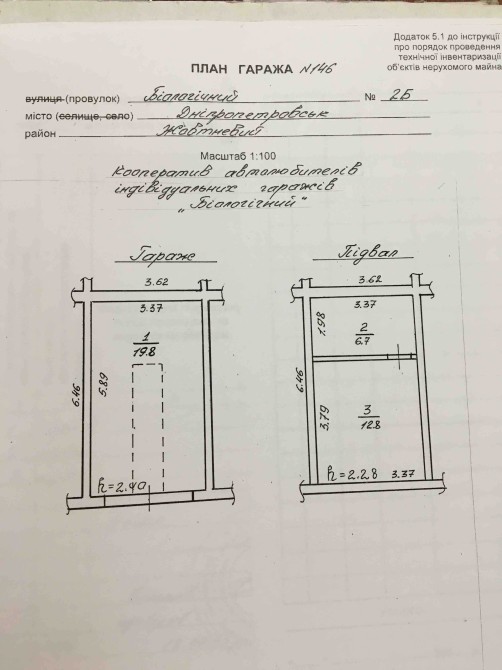 Додаток 5.1 до інструкції
про порядок проведення
технічної інвентаризації
об'єктів нерухомого майна
ПЛАН ГАРАЖА №146
вулиця (провулок) Біологічний № 2Б
місто (селище, село) Дніпропетровськ
район Жовтневий
Масштаб 1:100
Кооператив автолюбителів
індівідуальних гаражів
„Біологічний"
Гараж Підвал
3.62 3.62
3.37 3.37
1.98 2
6.7
1
19.8
6.46 5.89 6.46
3.79 3
12.8
h=2.40 h=2.28 3.37